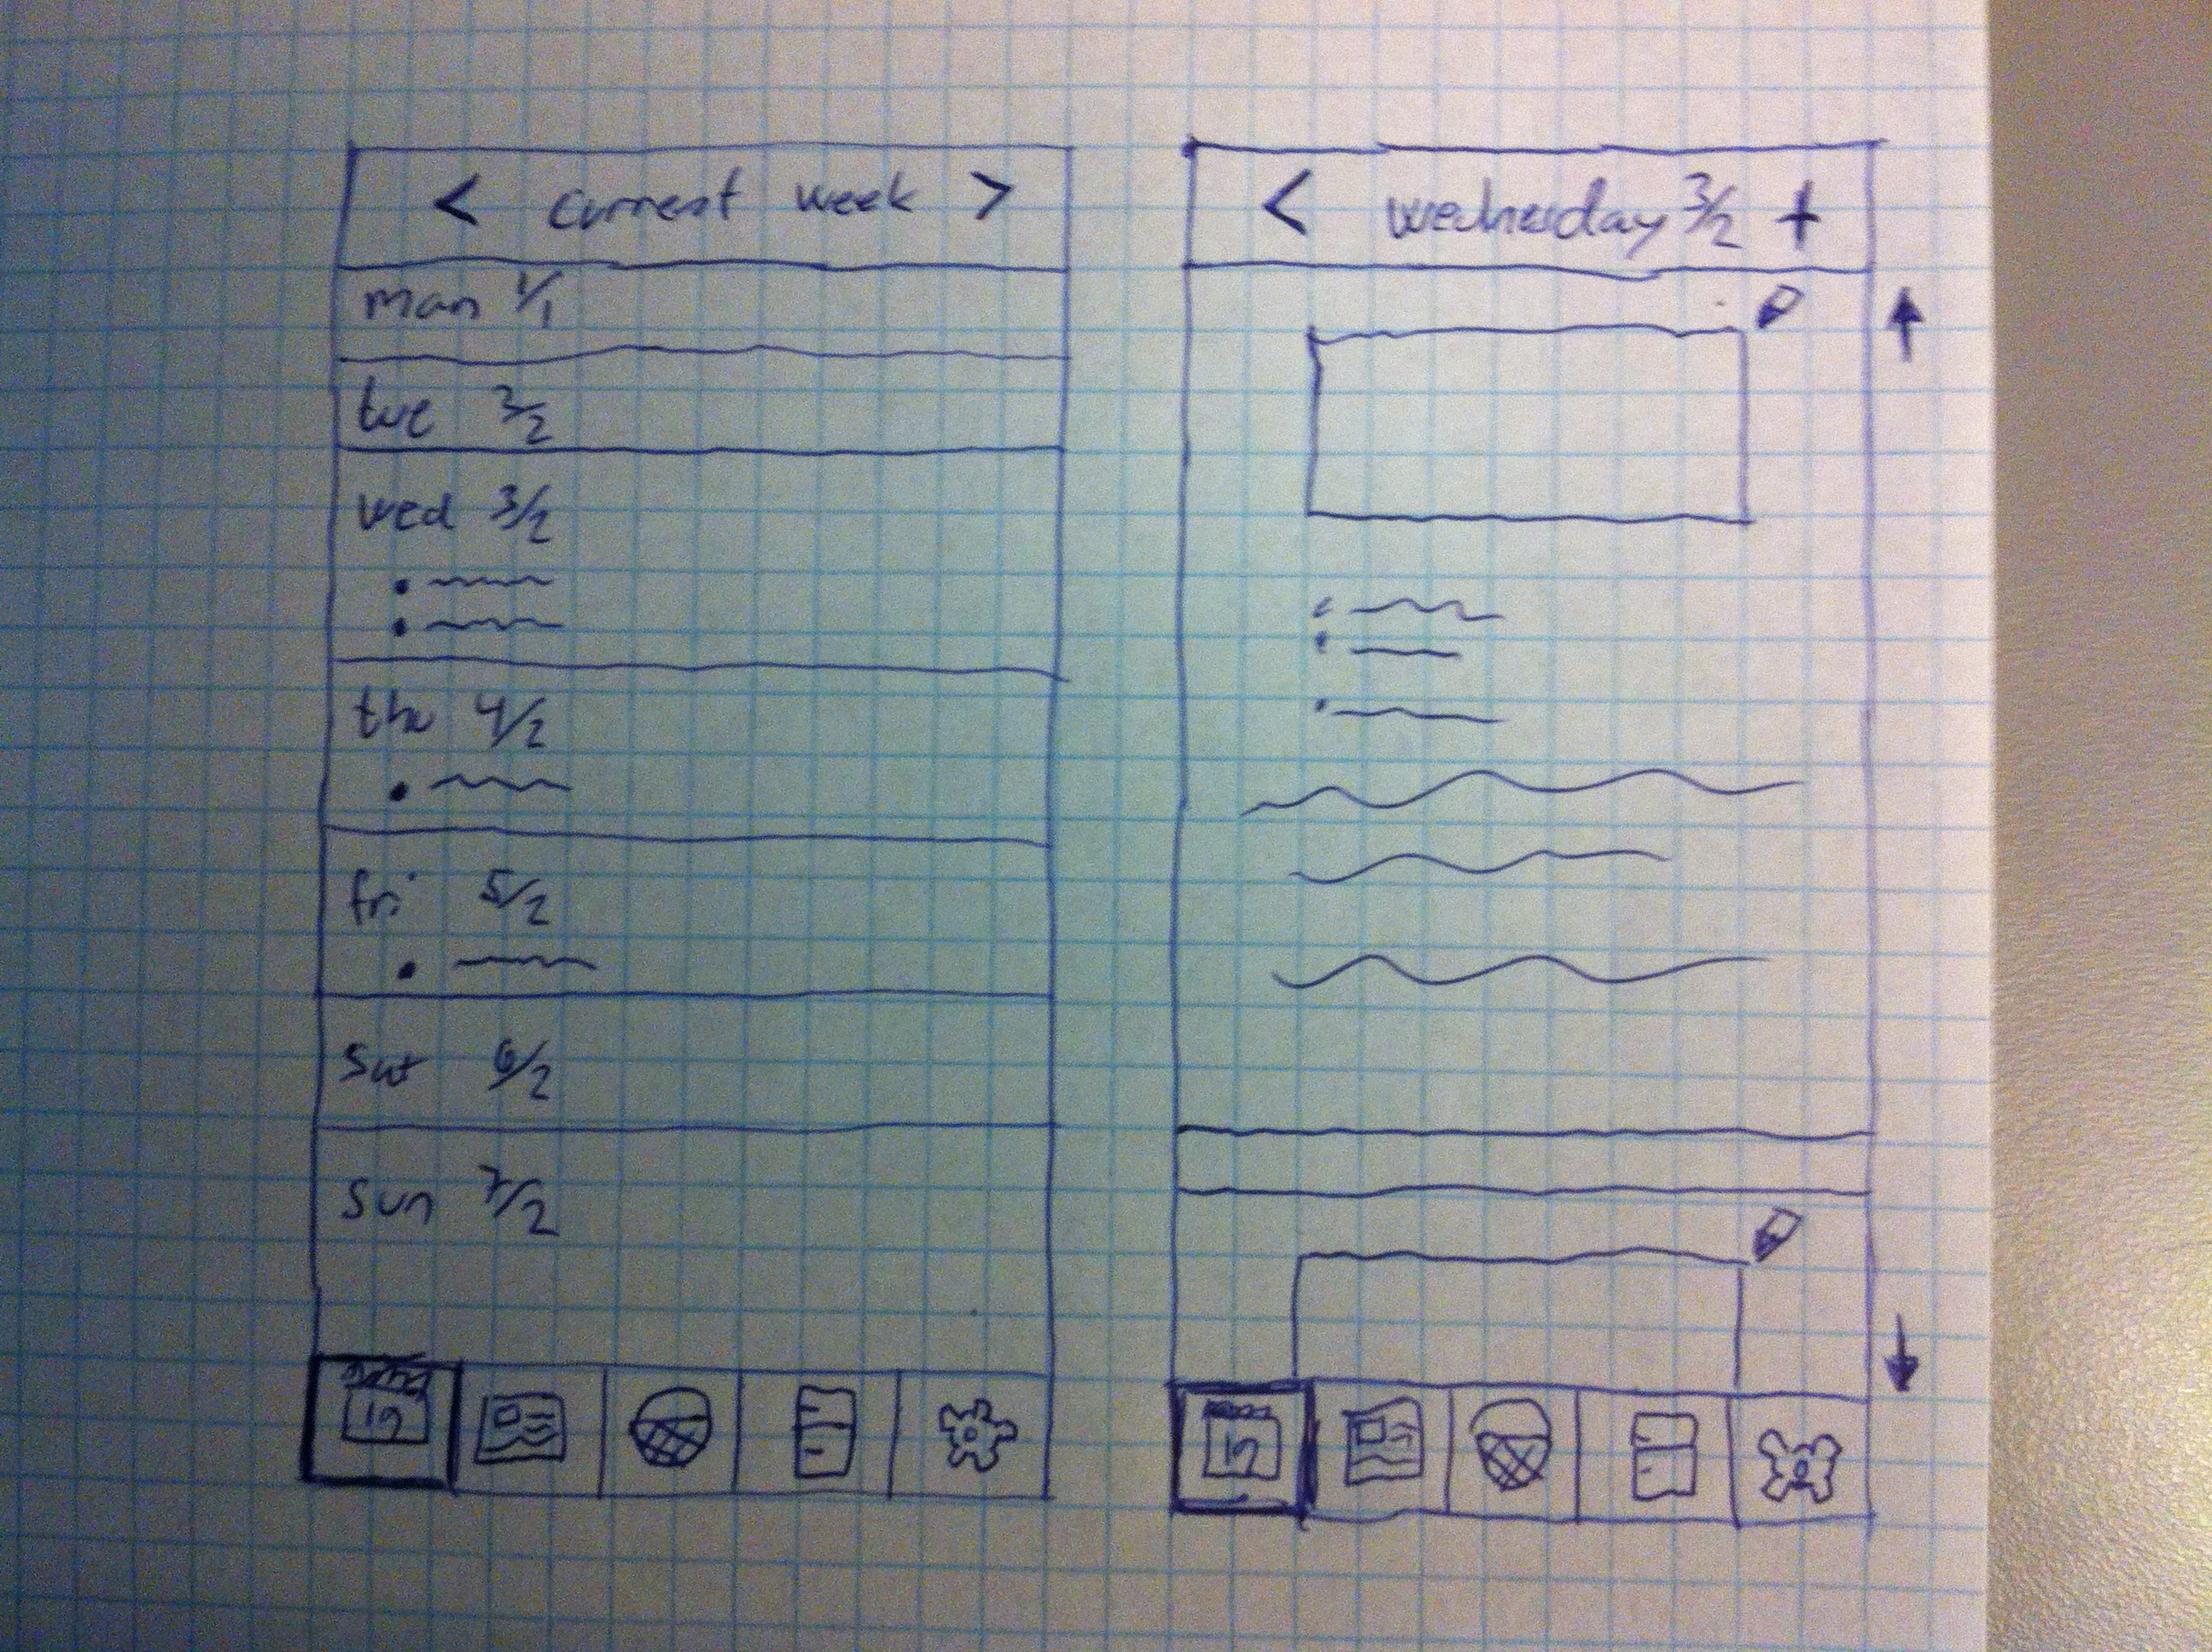 < current week >
man 1/1
tue 2/2
wed 3/2
thu 4/2
fri 5/2
sat 6/2
sun 7/2
< wednesday 3/2 +